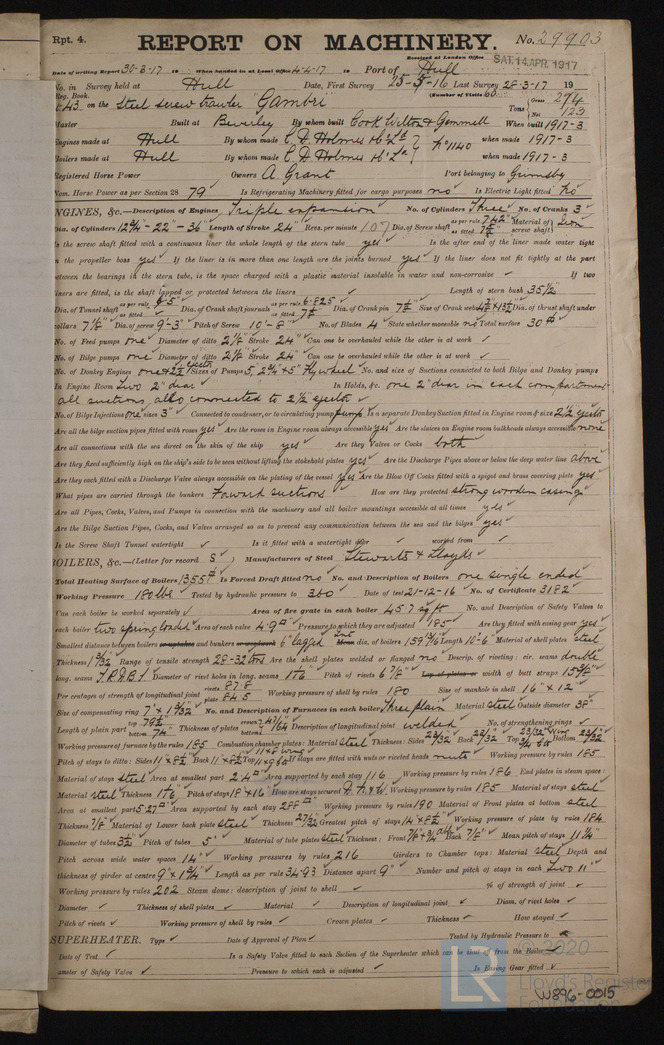 Rpt. 4.
REPORT ON MACHINERY.
No. 29903
Received at London Office SAT. 14 APR. 1917
Date of writing Report 30-3-17 19 When handed in at Local Office 4-4-17 19 Port of Hull
No. in Survey held at Hull Date, First Survey 25-5-16 Last Survey 28-3-17 19
Reg. Book. (Number of Visits 60
on the Steel screw trawler "Gambri" Tons Gross 274 Net 123
Master Built at Beverley By whom built Cook Welton & Gemmell When built 1917-3
Engines made at Hull By whom made C. D. Holmes & Co Ld No 1140 when made 1917-3
Boilers made at Hull By whom made C. D. Holmes & Co Ld when made 1917-3
Registered Horse Power Owners A. Grant Port belonging to Grimsby
Nom. Horse Power as per Section 28 79 Is Refrigerating Machinery fitted for cargo purposes no Is Electric Light fitted no
ENGINES, &c.—Description of Engines Triple expansion No. of Cylinders Three No. of Cranks 3
Dia. of Cylinders 12¾ - 22 - 36" Length of Stroke 24" Revs. per minute 107 Dia. of Screw shaft as per rule 7.42" as fitted Material of screw shaft Iron
Is the screw shaft fitted with a continuous liner the whole length of the stern tube yes Is the after end of the liner made water tight
in the propeller boss yes If the liner is in more than one length are the joints burned yes If the liner does not fit tightly at the part
between the bearings in the stern tube, is the space charged with a plastic material insoluble in water and non-corrosive ✓ If two
liners are fitted, is the shaft lapped or protected between the liners Length of stern bush 35½"
Dia. of Tunnel shaft as per rule 6.5" as fitted Dia. of Crank shaft journals as per rule 6.825 as fitted Dia. of Crank pin Size of Crank webs Dia. of thrust shaft under
collars 7⅛" Dia. of screw 9'-3" Pitch of Screw 10'-8" No. of Blades 4 State whether moveable no Total surface 30
No. of Feed pumps one Diameter of ditto 2⅛" Stroke 24" Can one be overhauled while the other is at work ✓
No. of Bilge pumps one Diameter of ditto 2⅛" Stroke 24" Can one be overhauled while the other is at work ✓
No. of Donkey Engines one & 2½" ejector Sizes of Pumps 5, 2¾ x 5" Flywheel No. and size of Suctions connected to both Bilge and Donkey pumps
In Engine Room Two 2" diar In Holds, &c. one 2" diar in each compartment
all suctions, also connected to 2½" ejector
No. of Bilge Injections one sizes 3" Connected to condenser, or to circulating pump pump Is a separate Donkey Suction fitted in Engine room & size 2½" ejector
Are all the bilge suction pipes fitted with roses yes Are the roses in Engine room always accessible yes Are the sluices on Engine room bulkheads always accessible none
Are all connections with the sea direct on the skin of the ship yes Are they Valves or Cocks both
Are they fixed sufficiently high on the ship's side to be seen without lifting the stokehold plates yes Are the Discharge Pipes above or below the deep water line above
Are they each fitted with a Discharge Valve always accessible on the plating of the vessel yes Are the Blow Off Cocks fitted with a spigot and brass covering plate yes
What pipes are carried through the bunkers Forward suctions How are they protected strong wooden casing
Are all Pipes, Cocks, Valves, and Pumps in connection with the machinery and all boiler mountings accessible at all times yes
Are the Bilge Suction Pipes, Cocks, and Valves arranged so as to prevent any communication between the sea and the bilges yes
Is the Screw Shaft Tunnel watertight ✓ Is it fitted with a watertight door ✓ worked from ✓
BOILERS, &c.—(Letter for record S) Manufacturers of Steel Stewarts & Lloyds
Total Heating Surface of Boilers 1355 Is Forced Draft fitted no No. and Description of Boilers one single ended
Working Pressure 180 lbs Tested by hydraulic pressure to 360 Date of test 21-12-16 No. of Certificate 3182
Can each boiler be worked separately ✓ Area of fire grate in each boiler 45.7 sq ft No. and Description of Safety Valves to
each boiler two spring loaded Area of each valve 4.9 Pressure to which they are adjusted 185 Are they fitted with easing gear yes
Smallest distance between boilers or uptakes and bunkers or woodwork 6" lagged Mean dia. of boilers 159 Length 10'-6" Material of shell plates steel
Thickness Range of tensile strength 28-32 tons Are the shell plates welded or flanged no Descrip. of riveting: cir. seams double
long. seams T.R.D.B.S. Diameter of rivet holes in long. seams Pitch of rivets 6⅞" Lap of plates or width of butt straps
Per centages of strength of longitudinal joint rivets 87.8 plate 84.5 Working pressure of shell by rules 180 Size of manhole in shell 16" x 12"
Size of compensating ring No. and Description of Furnaces in each boiler Three plain Material steel Outside diameter 38"
Length of plain part top 79½" bottom 74" Thickness of plates crown bottom Description of longitudinal joint welded No. of strengthening rings ✓
Working pressure of furnace by the rules 185 Combustion chamber plates: Material steel Thickness: Sides 22/32 Back 22/32 Top Bottom
Pitch of stays to ditto: Sides 11 x 8½ Back 11 x 8½ Top If stays are fitted with nuts or riveted heads nuts Working pressure by rules 185
Material of stays steel Area at smallest part 2.4 Area supported by each stay 116 Working pressure by rules 186 End plates in steam space:
Material steel Thickness Pitch of stays 18 x 16 How are stays secured Working pressure by rules 185 Material of stays steel
Area at smallest part 5.27 Area supported by each stay 288 Working pressure by rules 190 Material of Front plates at bottom steel
Thickness 7/8" Material of Lower back plate steel Thickness 27/32 Greatest pitch of stays 14 x 8½ Working pressure of plate by rules 184
Diameter of tubes 3½ Pitch of tubes 5" Material of tube plates steel Thickness: Front Back 7/8" Mean pitch of stays 11¼"
Pitch across wide water spaces 14" Working pressures by rules 216 Girders to Chamber tops: Material steel Depth and
thickness of girder at centre 9" x 1¾" Length as per rule 34.93 Distance apart 9" Number and pitch of stays in each Two 11"
Working pressure by rules 202 Steam dome: description of joint to shell ✓ % of strength of joint ✓
Diameter ✓ Thickness of shell plates ✓ Material ✓ Description of longitudinal joint ✓ Diam. of rivet holes ✓
Pitch of rivets ✓ Working pressure of shell by rules ✓ Crown plates ✓ Thickness ✓ How stayed ✓
SUPERHEATER. Type ✓ Date of Approval of Plan ✓ Tested by Hydraulic Pressure to
Date of Test ✓ Is a Safety Valve fitted to each Section of the Superheater which can be shut off from the Boiler
Diameter of Safety Valve ✓ Pressure to which each is adjusted ✓ Is Easing Gear fitted ✓
© 2020
LR
Lloyd's Register
Foundation
W896-0015